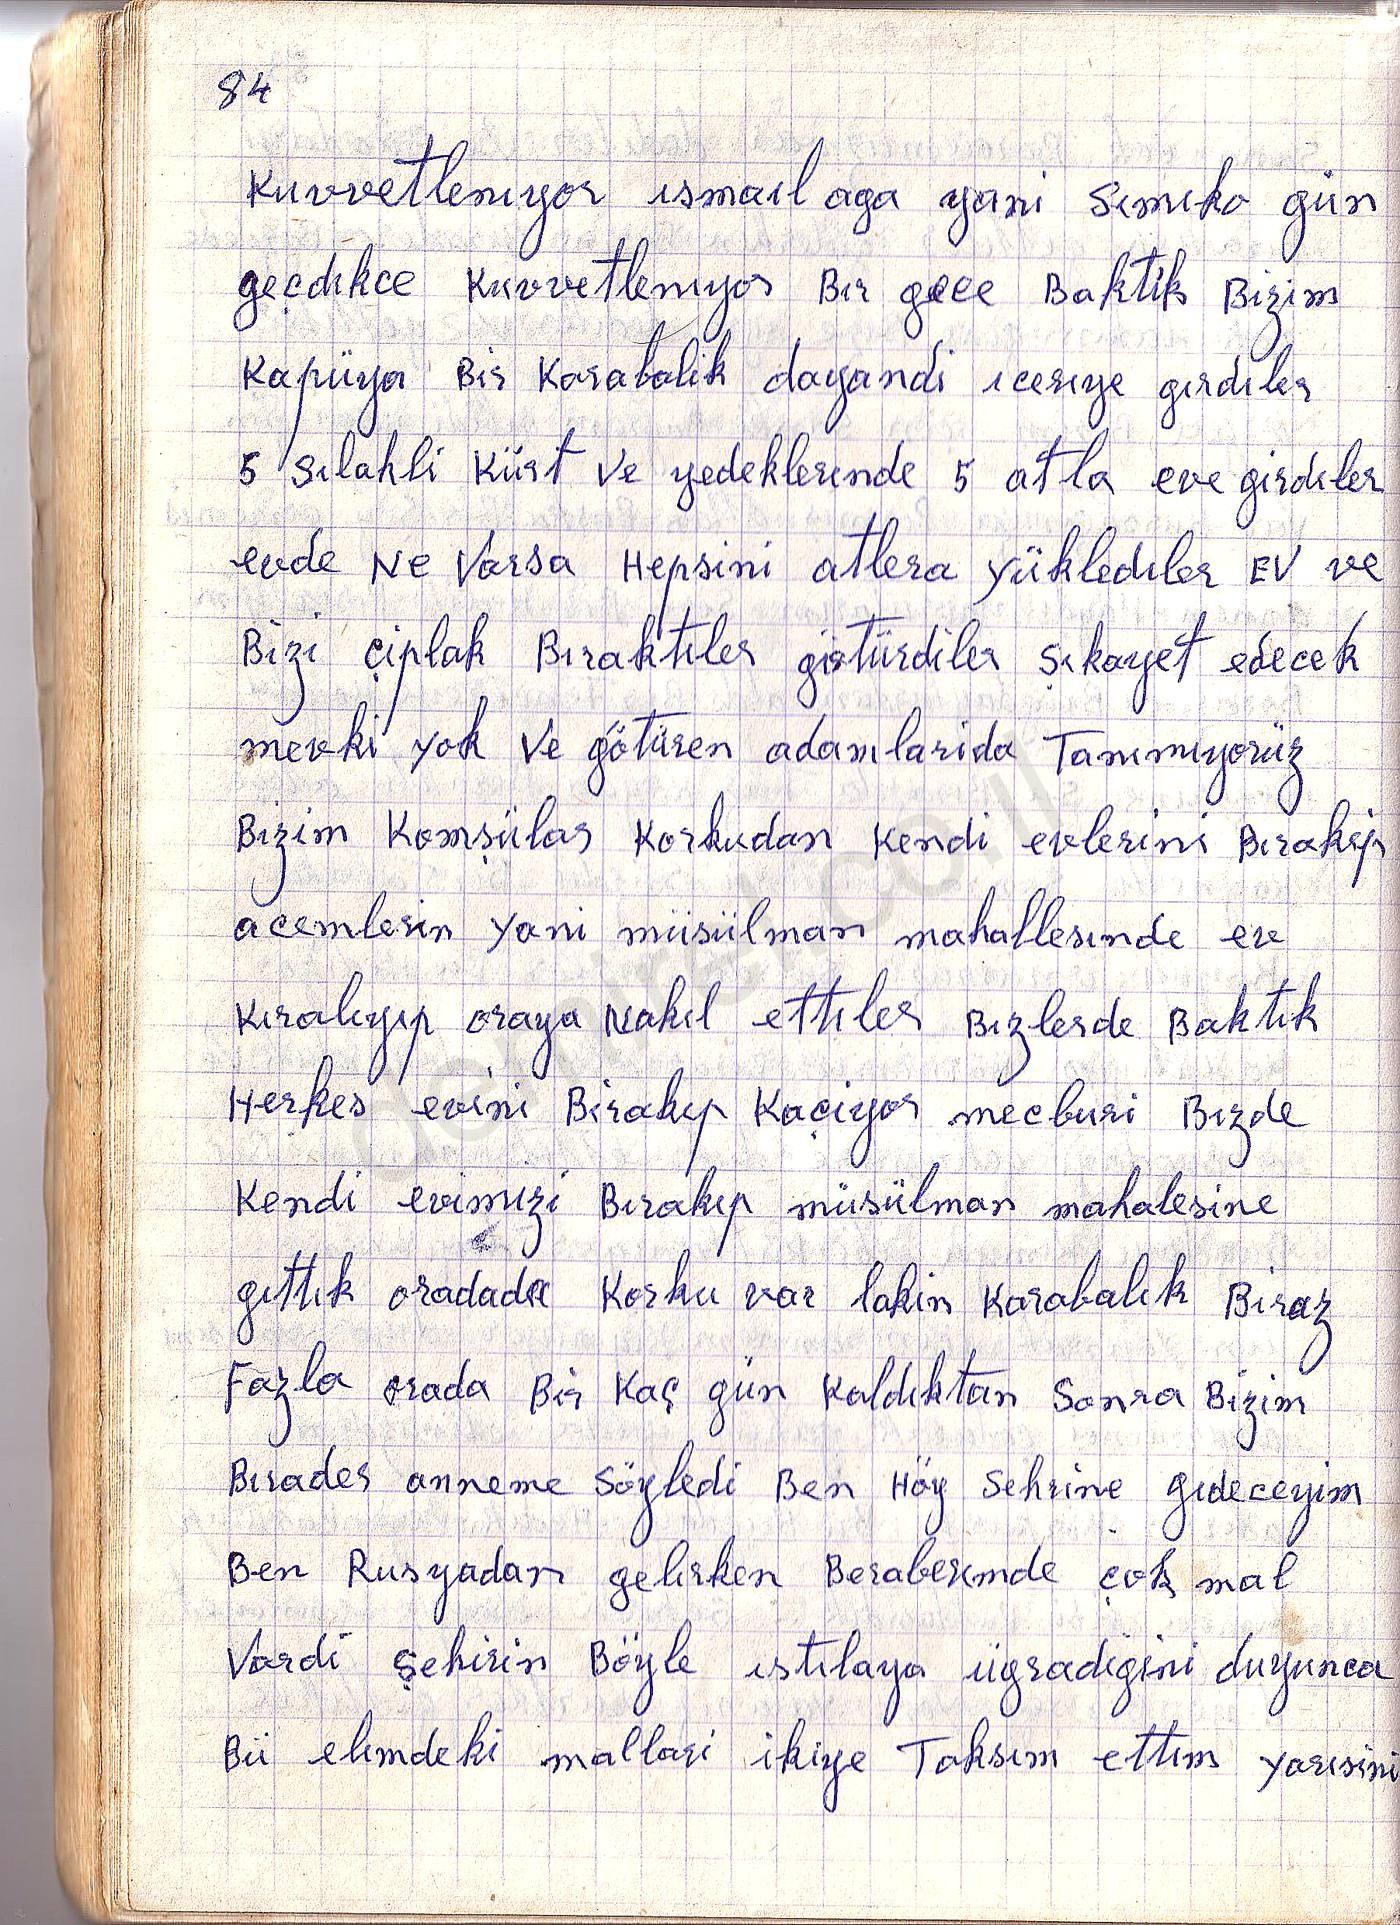 84
Kuvvetlenıyor ısmaıl aga yani Sımıko gün
geçdıkce Kuvvetlenıyor Bır gece Baktik Bizim
Kapüya Bir Karabalik dayandi ıcerıye gırdıler
5 sılahli Kürt ve yedeklerınde 5 atla eve girdıler
evde Ne Varsa Hepsini atlera yükledıler EV ve
Bizi çiplak Bıraktıler götürdiler şıkayet edecek
mevki yok ve götüren adamlarida Tanımıyorüz
Bizim Komşülar Korkudan Kendi evlerini Bırakip
acemlerin yani müsülman mahallesınde ev
Kıralıyıp oraya Nakıl ettıler Bızlerde Baktık
Herkes evini Birakıp Kaçiyor mecburi Bızde
Kendi evimızi Bırakıp müsülman mahalesine
gıttık oradada Korku var lakin Karabalık Biraz
Fazla orada Bir Kaç gün Kaldıktan Sonra Bizim
Bırader anneme Söyledi Ben Höy Sehrine gıdeceyim
Ben Rusyadan gelırken Beraberımde çok mal
Vardi şehirin Böyle ıstılaya ügradigini duyunca
Bü elımdeki mallari ikiye Taksım ettım yarısini